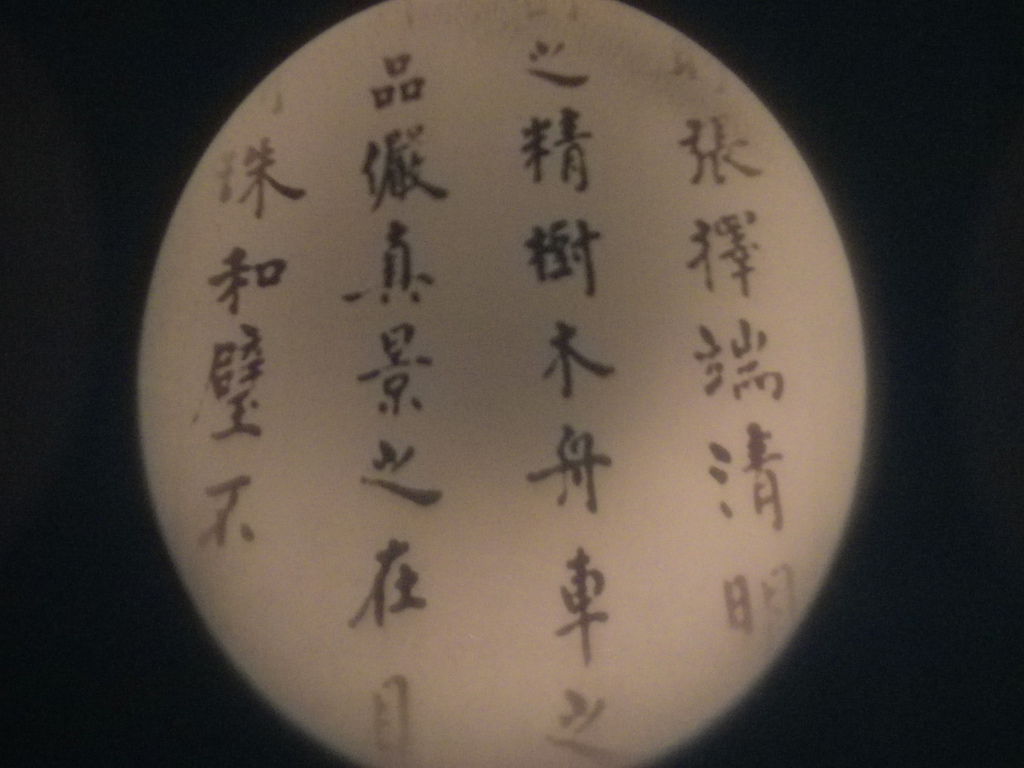 張擇端清明
之精樹木舟車之
品儼真景之在目
珠和璧不